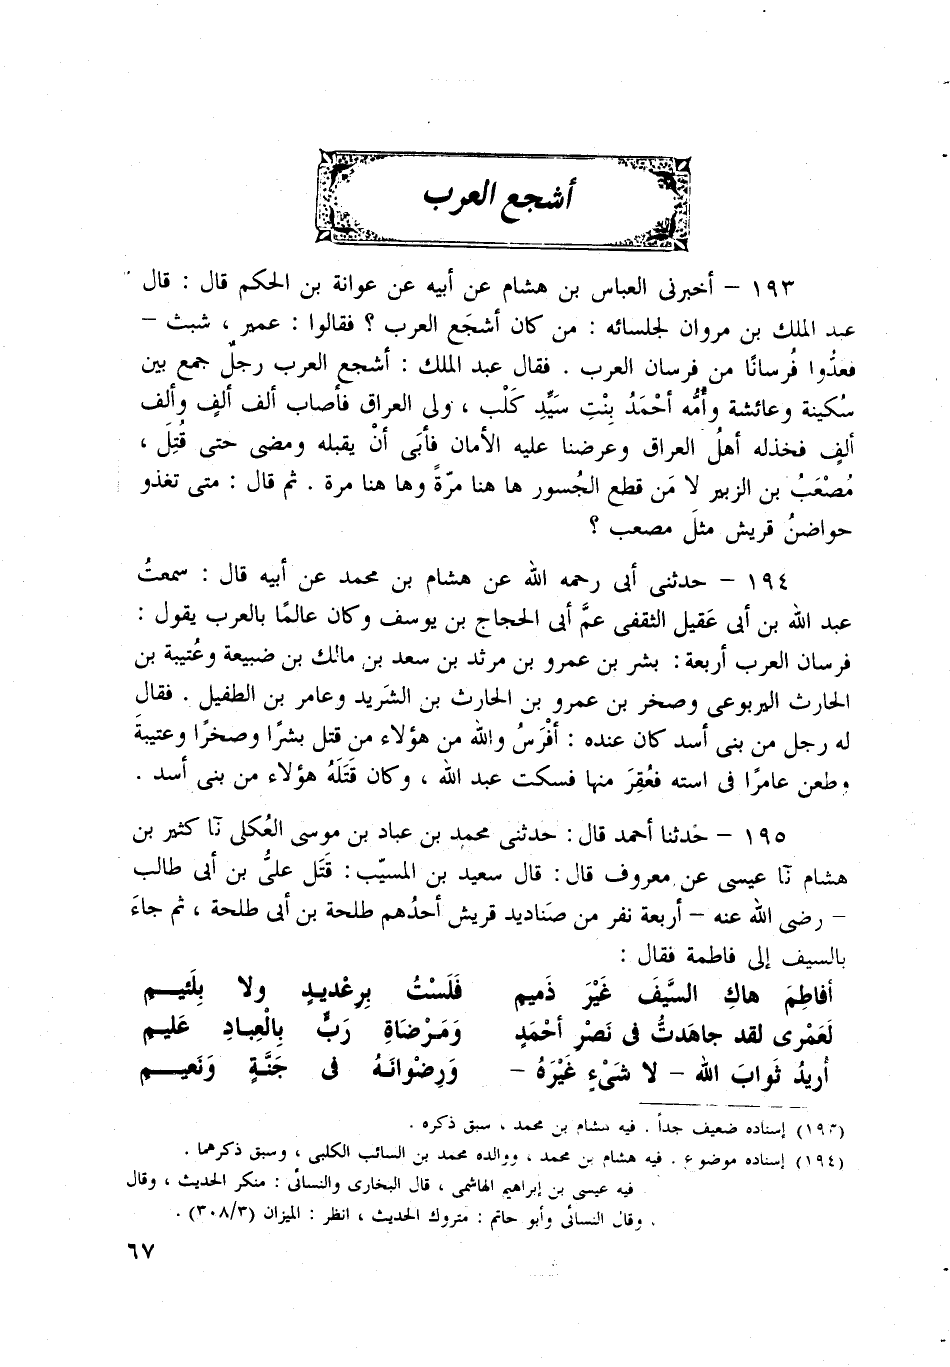 أشجع العرب
١٩٣ – أخبرنى العباس بن هشام عن أبيه عن عوانة بن الحكم قال : قال
عبد الملك بن مروان لجلسائه : من كان أشجَع العرب ؟ فقالوا : عمير ، شبث –
فعدُّوا فُرسانًا من فرسان العرب . فقال عبد الملك : أشجع العرب رجلٌ جمع بين
سُكينة وعائشة وأُمُّه أحْمَدُ بِنْتِ سَيِّدِ كَلْب ، ولى العراق فأصاب ألف ألفٍ وألف
ألفٍ فخذله أهلُ العراق وعرضنا عليه الأمان فأبَى أنْ يقبله ومضى حتى قُتِلَ ،
مُصْعَبُ بن الزبير لا مَن قطع الجُسور ها هنا مرّةً وها هنا مرة . ثم قال : متى تغذو
حواضنُ قريش مثلَ مصعب ؟
١٩٤ – حدثنى أبى رحمه الله عن هشام بن محمد عن أبيه قال : سمعتُ
عبد الله بن أبى عَقيل الثقفى عمَّ أبى الحجاج بن يوسف وكان عالمًا بالعرب يقول :
فرسان العرب أربعة : بشر بن عمرو بن مرثد بن سعد بن مالك بن ضبيعة وعُتيبة بن
الحارث اليربوعى وصخر بن عمرو بن الحارث بن الشريد وعامر بن الطفيل . فقال
له رجل من بنى أسد كان عنده : أفْرَسُ والله من هؤلاء من قتل بشرًا وصخرًا وعتيبةَ
وطعن عامرًا فى استه فعُقِرَ منها فسكت عبد الله ، وكان قَتَلَهُ هؤلاء من بنى أسد .
١٩٥ – حدثنا أحمد قال : حدثنى محمد بن عباد بن موسى العُكلى نآ كثير بن
هشام نآ عيسى عن معروف قال : قال سعيد بن المسيّب : قَتَل علىُّ بن أبى طالب
– رضى الله عنه – أربعة نفر من صناديد قريش أحدُهم طلحة بن أبى طلحة ، ثم جاءَ
بالسيف إلى فاطمة فقال :
أفاطِمَ هاكِ السَّيفَ غَيْرَ ذَميم فَلَسْتُ بِرِعْديدٍ ولا بِلَئيم
لَعَمْرى لقد جاهَدتُّ فى نَصْرِ أحْمَدٍ وَمَرْضَاةِ رَبٍّ بِالْعِبادِ عَليم
أُريدُ ثَوابَ الله – لا شَىْءٍ غَيْرَهُ – وَرِضْوانَهُ فى جَنَّةٍ وَنَعيم
(١٩٣) إسناده ضعيف جداً . فيه هشام بن محمد ، سبق ذكره .
(١٩٤) إسناده موضوع . فيه هشام بن محمد ، ووالده محمد بن السائب الكلبى ، وسبق ذكرهما .
فيه عيسى بن إبراهيم الهاشمى ، قال البخارى والنسائى : منكر الحديث ، وقال
. وقال النسائى وأبو حاتم : متروك الحديث ، انظر : الميزان (٣٠٨/٣) .
٦٧